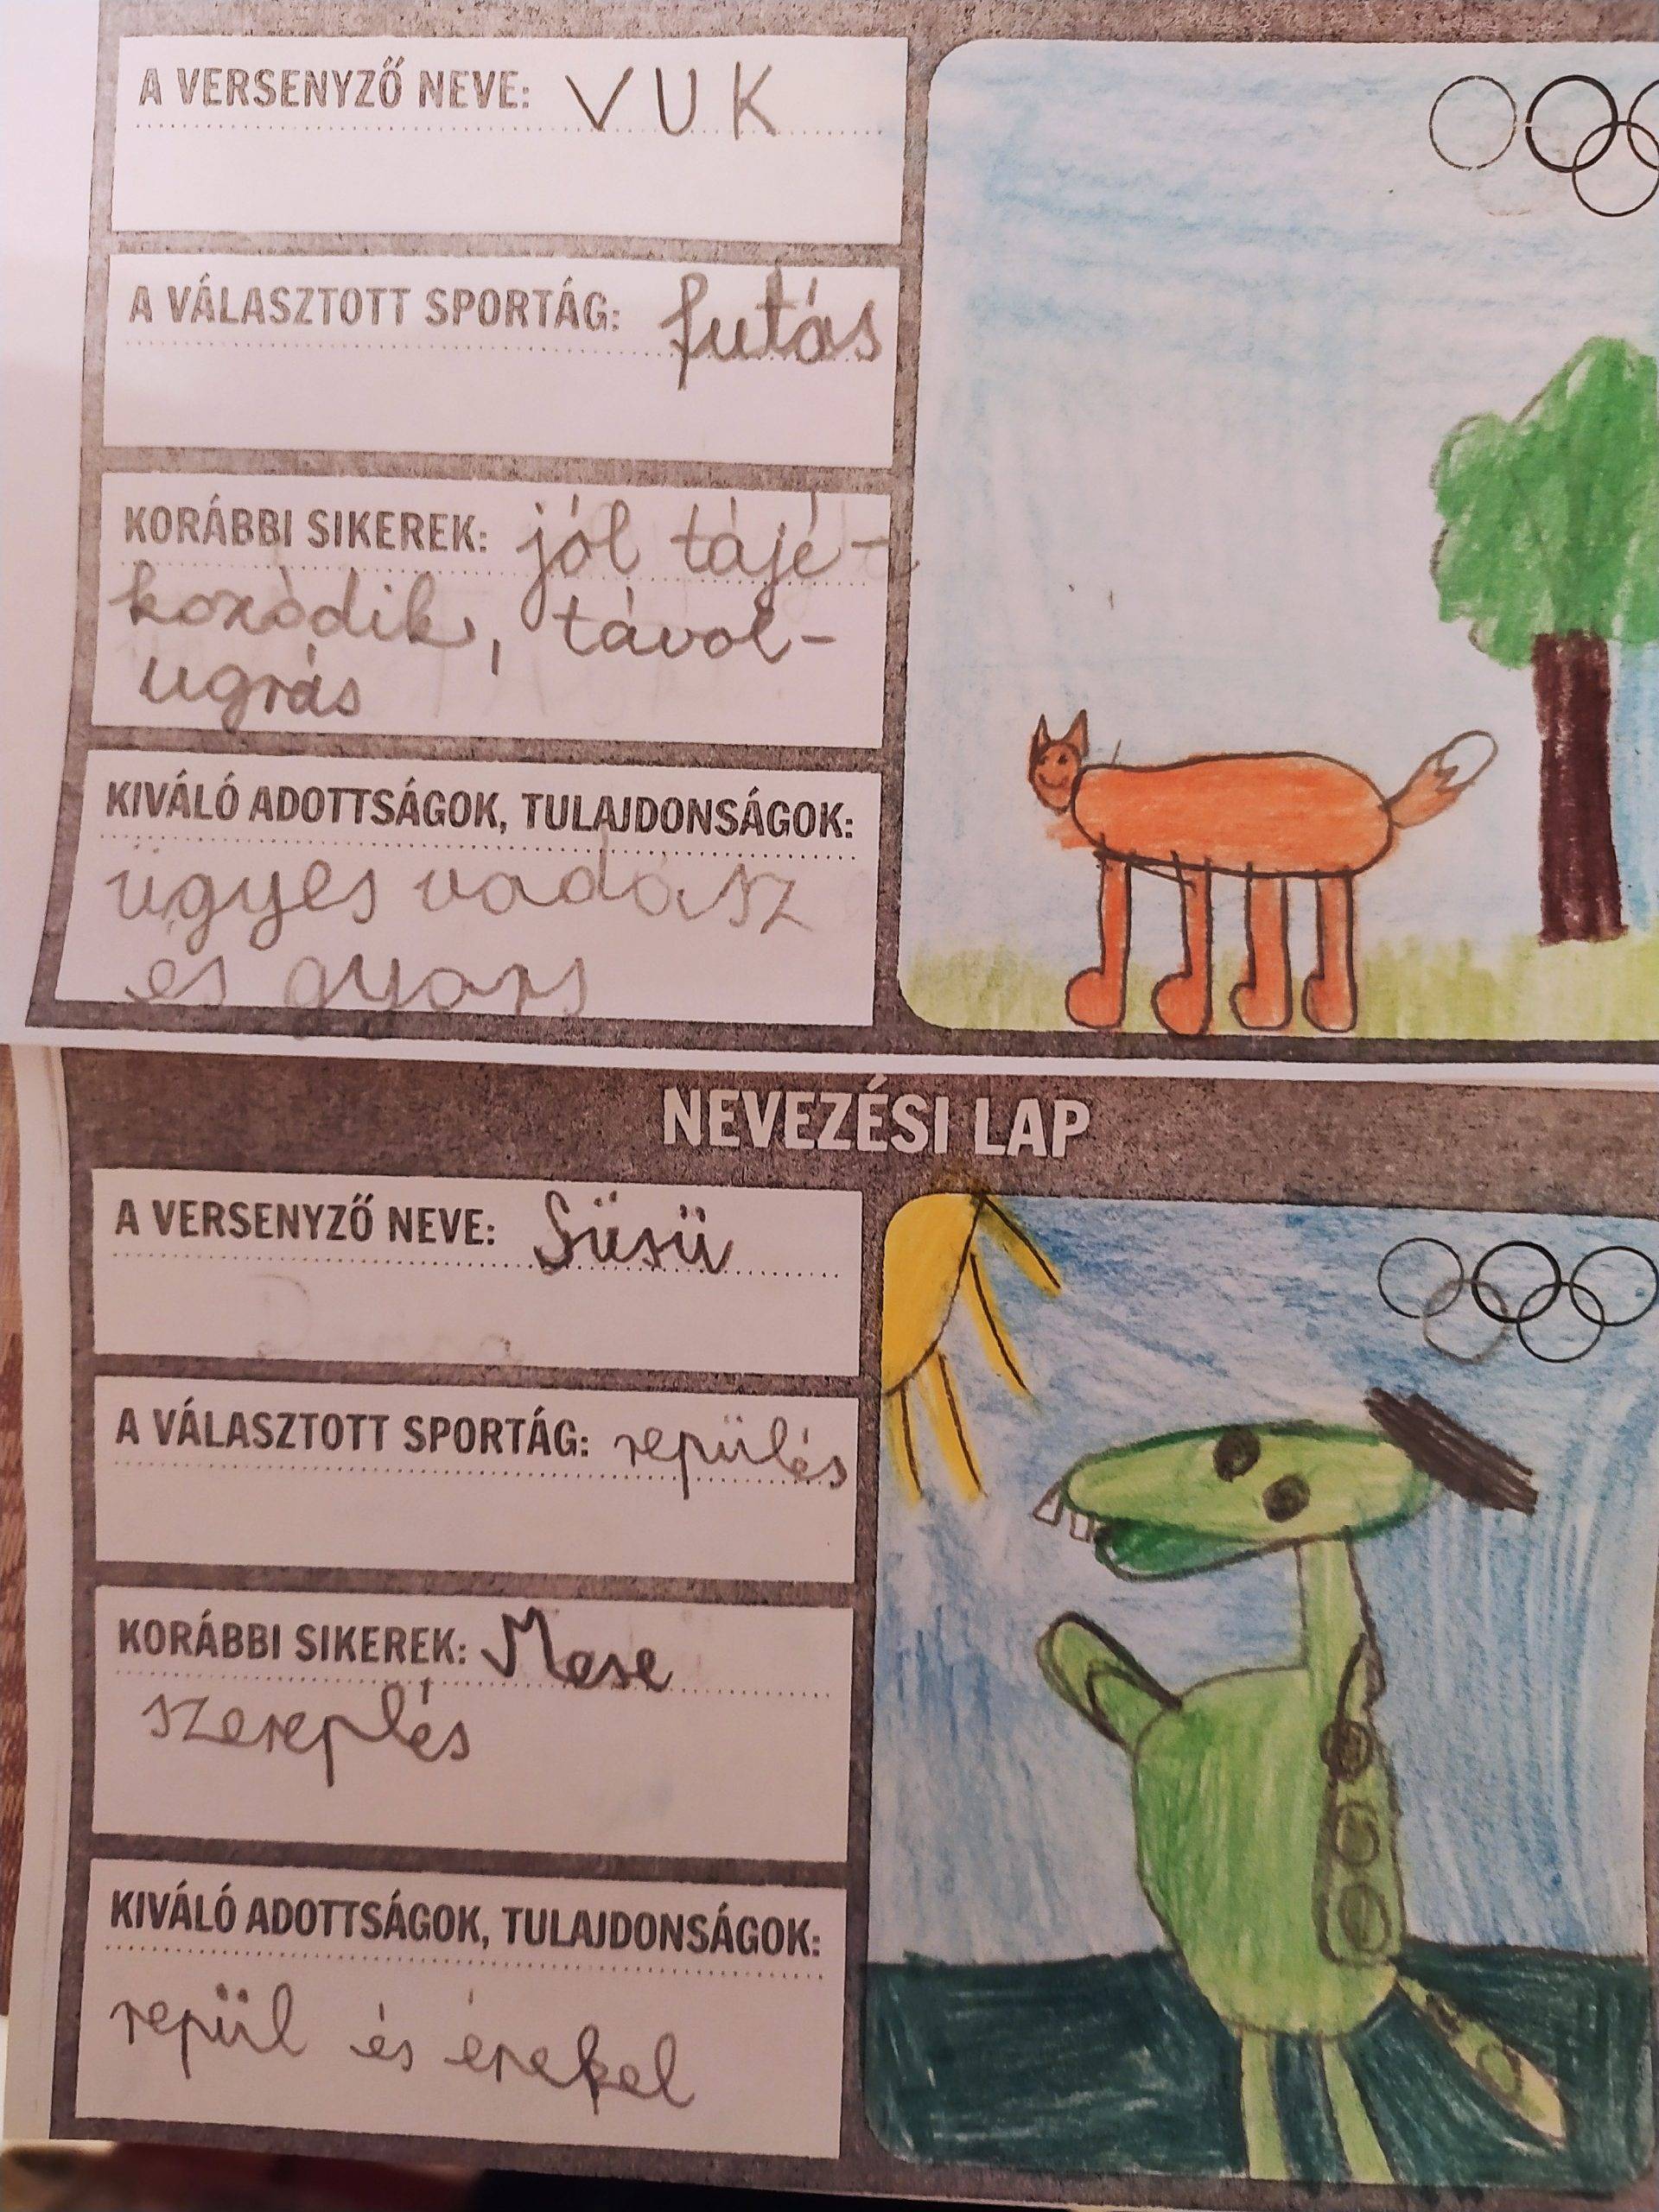 A VERSENYZŐ NEVE: VUK
A VÁLASZTOTT SPORTÁG: futás
KORÁBBI SIKEREK: jól tájé-
kozódik, távol-
ugrás
KIVÁLÓ ADOTTSÁGOK, TULAJDONSÁGOK:
ügyes vadász
és gyors
NEVEZÉSI LAP
A VERSENYZŐ NEVE: Süsü
A VÁLASZTOTT SPORTÁG: repülés
KORÁBBI SIKEREK: Mese
szereplés
KIVÁLÓ ADOTTSÁGOK, TULAJDONSÁGOK:
repül és énekel